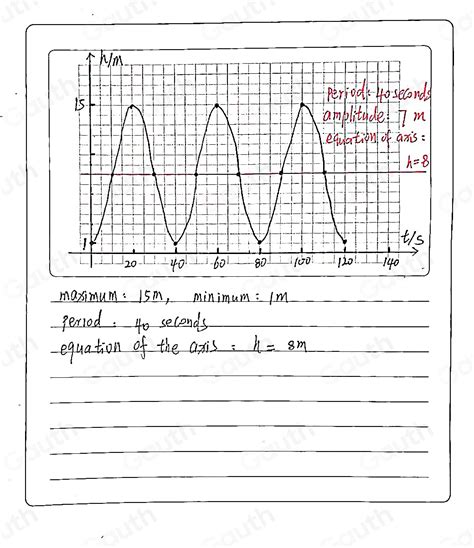 h/m
15
period: 40 seconds
amplitude: 7 m
equation of axis:
h=8
1
t/s
20 40 60 80 100 120 140
maximum: 15m, minimum: 1m
Period: 40 seconds
equation of the axis: h = 8m
Gauth